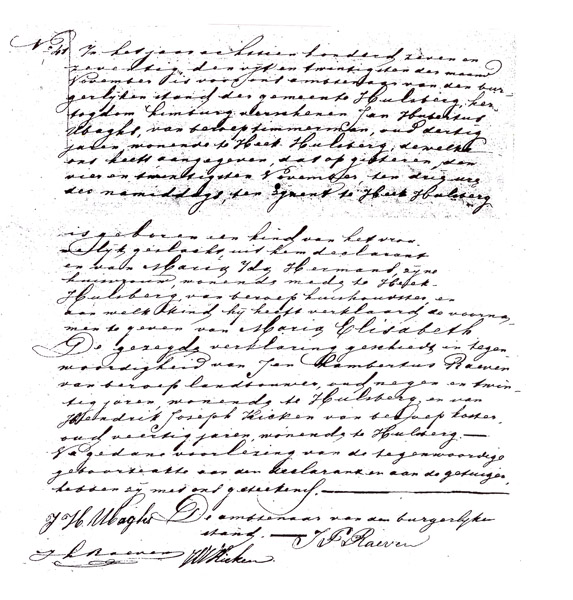 No. 41 In het jaar achttien honderd zeven en
zeventig, den vijf en twintigsten der maand
November is voor ons ambtenaar van den bur-
gerlijken stand der gemeente Hulsberg, her-
togdom Limburg, verschenen Jan Hubertus
Ubaghs, van beroep timmerman, oud dertig
jaren, wonende te Heek Hulsberg, dewelke
ons heeft aangegeven, dat op gisteren, den
vier en twintigsten November ten drie ure
des namiddags, ten te Heek Hulsberg
is geboren een kind van het vrou-
welijk geslacht, uit hem declarant
en van Maria Ida Hermans, zijne
huisvrouw wonende mede te Heek-
Hulsberg, van beroep huishoudster, en
aan welk kind hij heeft verklaard de voorna-
men te geven van Maria Elisabeth
De gezegde verklaring geschiedt in tegen
woordigheid van Jan Lambertus Raeven
van beroep landbouwer, oud negen en twin-
tig jaren, wonende te Hulsberg, en van
Hendrik Joseph Kicken van beroep koster,
oud veertig jaren, wonende te Hulsberg. —
Na gedane voorlezing van de tegenwoordige
geboorteakte aan den declarant en aan de getuigen,
hebben zij met ons geteekend. —
J H Ubaghs De ambtenaar van den burgerlijken
stand. — J P Raeven
J L Raeven HJ Kicken.